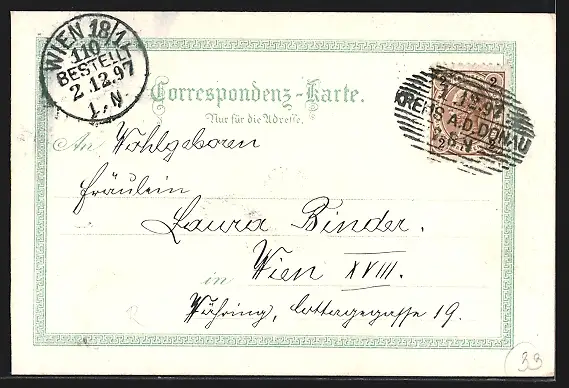 WIEN 18/1
110
BESTELLT
2.12.97
1.-N
2
1.12.97
KREMS A.D. DONAU
6-N
2 2
Correspondenz-Karte.
Nur für die Adresse.
An Wohlgeboren
Fräulein
Laura Binder.
in Wien XVIII.
Währing, Cottagegasse 19.
33